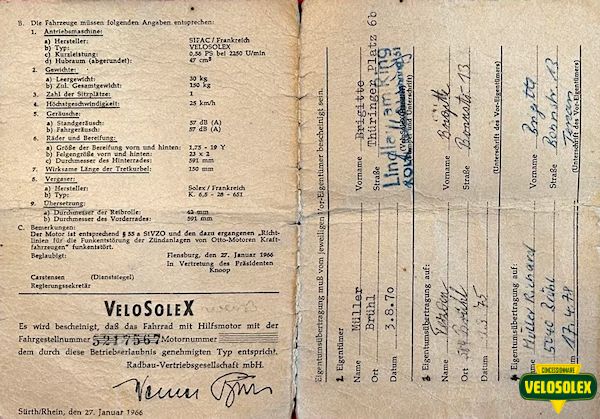 B. Die Fahrzeuge müssen folgenden Angaben entsprechen:
1. Antriebsmaschine:
a) Hersteller: SIFAC / Frankreich
b) Typ: VELOSOLEX
c) Kurzleistung: 0,56 PS bei 2250 U/min
d) Hubraum (abgerundet): 47 cm³
2. Gewichte:
a) Leergewicht: 30 kg
b) Zul. Gesamtgewicht: 150 kg
3. Zahl der Sitzplätze: 1
4. Höchstgeschwindigkeit: 25 km/h
5. Geräusche:
a) Standgeräusch: 57 dB (A)
b) Fahrgeräusch: 57 dB (A)
6. Räder und Bereifung:
a) Größe der Bereifung vorn und hinten: 1,75 - 19 Y
b) Felgengröße vorn und hinten: 23 x 2
c) Durchmesser des Hinterrades: 591 mm
7. Wirksame Länge der Tretkurbel: 150 mm
8. Vergaser:
a) Hersteller: Solex / Frankreich
b) Typ: K. 6,5 - 28 - 651
9. Übersetzung:
a) Durchmesser der Reibrolle: 42 mm
b) Durchmesser des Vorderrades: 591 mm
C. Bemerkungen:
Der Motor ist entsprechend § 55 a StVZO und den dazu ergangenen „Richt-
linien für die Funkentstörung der Zündanlagen von Otto-Motoren Kraft-
fahrzeugen" funkentstört.
Beglaubigt: Flensburg, den 27. Januar 1966
In Vertretung des Präsidenten
Knoop
Carstensen (Dienstsiegel)
Regierungssekretär
VELOSOLEX
Es wird bescheinigt, daß das Fahrrad mit Hilfsmotor mit der
Fahrgestellnummer 5217567 Motornummer
dem durch diese Betriebserlaubnis genehmigten Typ entspricht.
Radbau-Vertriebsgesellschaft mbH.
Sürth/Rhein, den 27. Januar 1966
Eigentumsübertragung muß vom jeweiligen Vor-Eigentümer bescheinigt sein.
1. Eigentümer
Name Müller Vorname Brigitte
Ort Brühl Straße Thüringer Platz 6b
Datum 3.8.70 Lindlar am Ring
Eigentumsübertragung auf:
Name Vorname Brigitte
Ort Brühl Straße Bonnstr 13
Datum 75
(Unterschrift des Vor-Eigentümers)
Eigentumsübertragung auf:
Name Müller Richard Vorname Brigitte
Ort 5040 Brühl Straße Bonnstr. 13
Datum 17.4.78
(Unterschrift des Vor-Eigentümers)
CONCESSIONNAIRE
VELOSOLEX